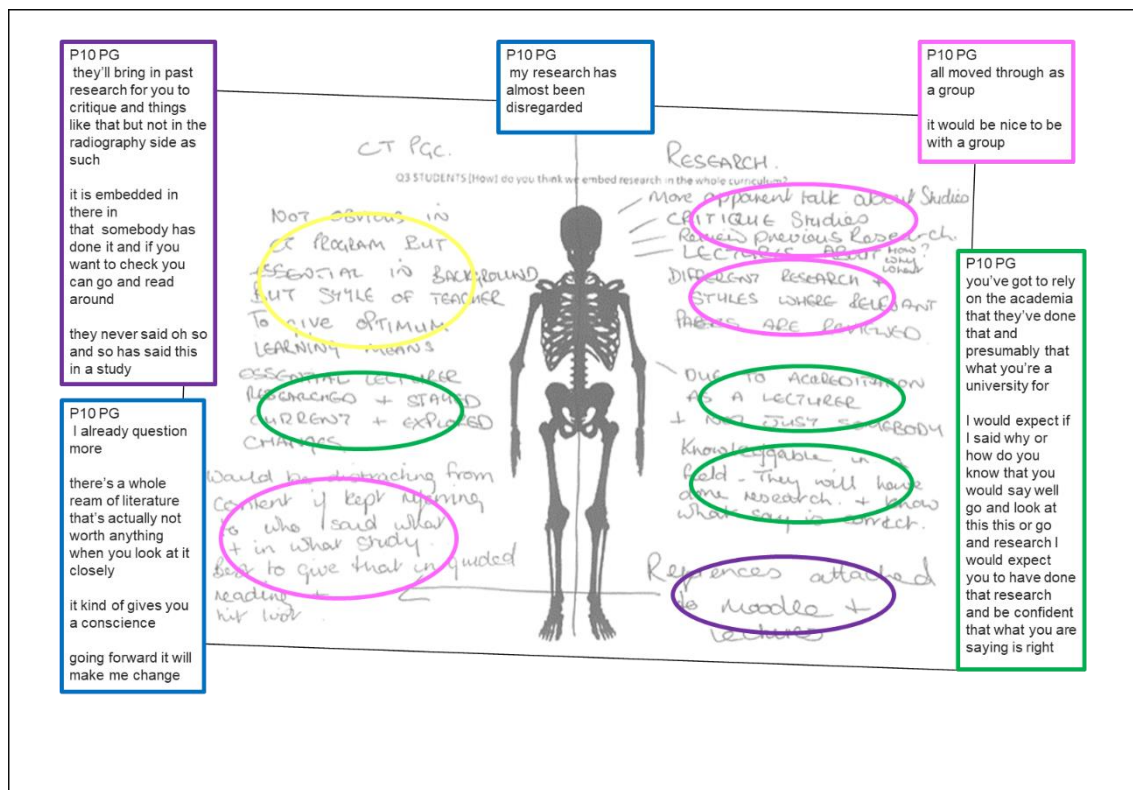 P10 PG
they'll bring in past
research for you to
critique and things
like that but not in the
radiography side as
such
it is embedded in
there in
that somebody has
done it and if you
want to check you
can go and read
around
they never said oh so
and so has said this
in a study
P10 PG
my research has
almost been
disregarded
P10 PG
all moved through as
a group
it would be nice to be
with a group
P10 PG
I already question
more
there's a whole
ream of literature
that's actually not
worth anything
when you look at it
closely
it kind of gives you
a conscience
going forward it will
make me change
P10 PG
you've got to rely
on the academia
that they've done
that and
presumably that
what you're a
university for
I would expect if
I said why or
how do you
know that you
would say well
go and look at
this this or go
and research I
would expect
you to have done
that research
and be confident
that what you are
saying is right
CT PGC.
RESEARCH.
Q3 STUDENTS [How] do you think we embed research in the whole curriculum?
NOT OBVIOUS IN
CT PROGRAM BUT
ESSENTIAL IN BACKGROUND
BUT STYLE OF TEACHER
TO GIVE OPTIMUM
LEARNING MEANS
ESSENTIAL LECTURER
RESEARCHED + STAYED
CURRENT + EXPLORED
CHANGES
would be distracting from
content if kept referring
to who said what
+ in what study.
Best to give that in guided
reading +
hit list.
More apparent talk about Studies
CRITIQUE Studies
Review previous Research.
LECTURES ABOUT HOW?
WHY
WHAT
DIFFERENT RESEARCH +
STYLES WHERE RELEVANT
PAPERS ARE REVIEWED.
DUE TO ACCREDITATION
AS A LECTURER
+ NOT JUST SOMEBODY
Knowledgable in a
field - They will have
done research. + know
what say is correct.
References attached
to moodle +
Lectures